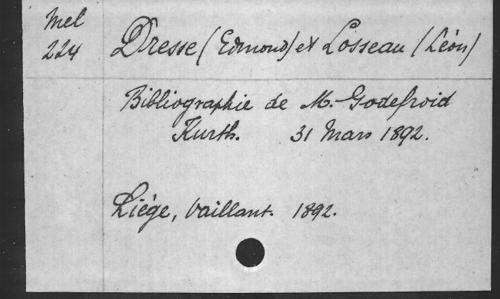 Mel
224
Dresse (Edmond) et Losseau (Léon)
Bibliographie de M. Godefroid
Kurth. 31 Mars 1892.
Liége, Vaillant. 1892.